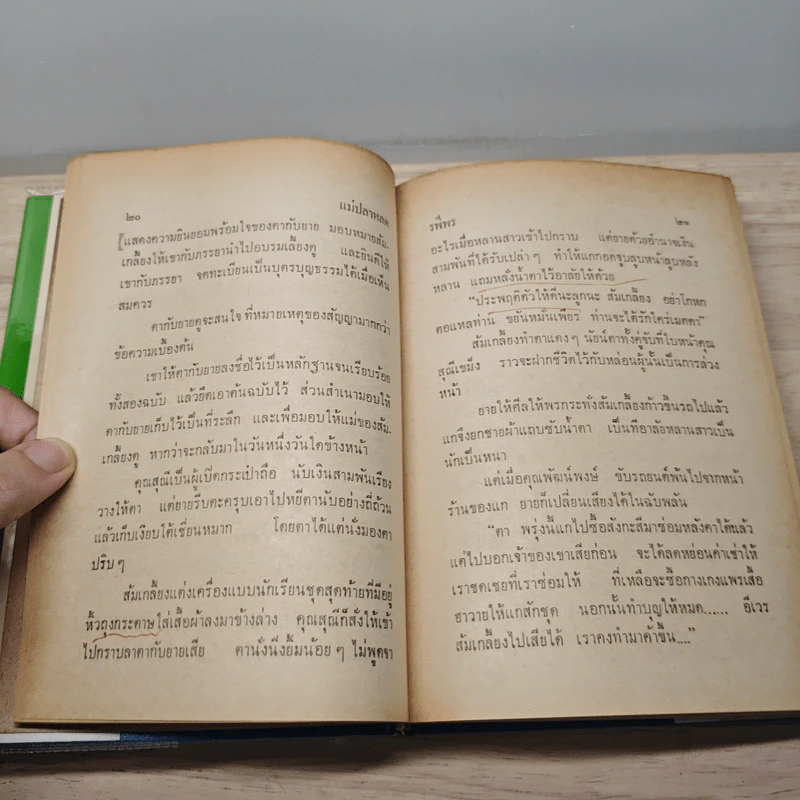 ๒๐ แม่ปลาหลด
แสดงความยินยอมพร้อมใจของตากับยาย มอบหมายส้ม-
เกลี้ยงให้เขากับภรรยานำไปอบรมเลี้ยงดู และยินดีให้
เขากับภรรยา จดทะเบียนเป็นบุตรบุญธรรมได้เมื่อเห็น
สมควร
ตากับยายดูจะสนใจที่หมายเหตุของสัญญามากกว่า
ข้อความเบื้องต้น
เขาให้ตากับยายลงชื่อไว้เป็นหลักฐานจนเรียบร้อย
ทั้งสองฉบับ แล้วยึดเอาต้นฉบับไว้ ส่วนสำเนามอบให้
ตากับยายเก็บไว้เป็นที่ระลึก และเพื่อมอบให้แม่ของส้ม-
เกลี้ยงดู หากว่าจะกลับมาในวันหนึ่งวันใดข้างหน้า
คุณสุณีเป็นผู้เปิดกระเป๋าถือ นับเงินสามพันเรียง
วางให้ตา แต่ยายรีบตะครุบเอาไปหยีตานับอย่างถี่ถ้วน
แล้วเก็บเงียบใต้เชี่ยนหมาก โดยตาได้แต่นั่งมองตา
ปริบๆ
ส้มเกลี้ยงแต่งเครื่องแบบนักเรียนชุดสุดท้ายที่มีอยู่
หิ้วถุงกระดาษใส่เสื้อผ้าลงมาข้างล่าง คุณสุณีก็สั่งให้เข้า
ไปกราบลาตากับยายเสีย ตานั่งนิ่งยิ้มน้อยๆ ไม่พูดจา
รพีพร ๒๑
อะไรเมื่อหลานสาวเข้าไปกราบ แต่ยายด้วยอำนาจเงิน
สามพันที่ได้รับเปล่าๆ ทำให้แกกอดจูบลูบหน้าลูบหลัง
หลาน แถมหลั่งน้ำตาไว้อาลัยให้ด้วย
“ประพฤติตัวให้ดีนะลูกนะ ส้มเกลี้ยง อย่าโกหก
ตอแหลท่าน ขยันหมั่นเพียร ท่านจะได้รักใคร่เมตตา”
ส้มเกลี้ยงทำตาแดงๆ นัยน์ตาทั้งคู่จับที่ใบหน้าคุณ
สุณีเขม็ง ราวจะฝากชีวิตไว้กับหล่อนผู้นั้นเป็นการล่วง
หน้า
ยายให้ศีลให้พรกระทั่งส้มเกลี้ยงก้าวขึ้นรถไปแล้ว
แกจึงยกชายผ้าแถบซับน้ำตา เป็นที่อาลัยหลานสาวเป็น
นักเป็นหนา
แต่เมื่อคุณพัฒน์พงษ์ ขับรถยนต์พ้นไปจากหน้า
ร้านของแก ยายก็เปลี่ยนเสียงได้ในฉับพลัน
“ตา พรุ่งนี้แกไปซื้อสังกะสีมาซ่อมหลังคาได้แล้ว
แต่ไปบอกเจ้าของเขาเสียก่อน จะได้ลดหย่อนค่าเช่าให้
เราชดเชยที่เราซ่อมให้ ที่เหลือจะซื้อกางเกงแพรเสื้อ
ฮาวายให้แกสักชุด นอกนั้นทำบุญให้หมด...... อีเวร
ส้มเกลี้ยงไปเสียได้ เราคงทำมาค้าขึ้น....”